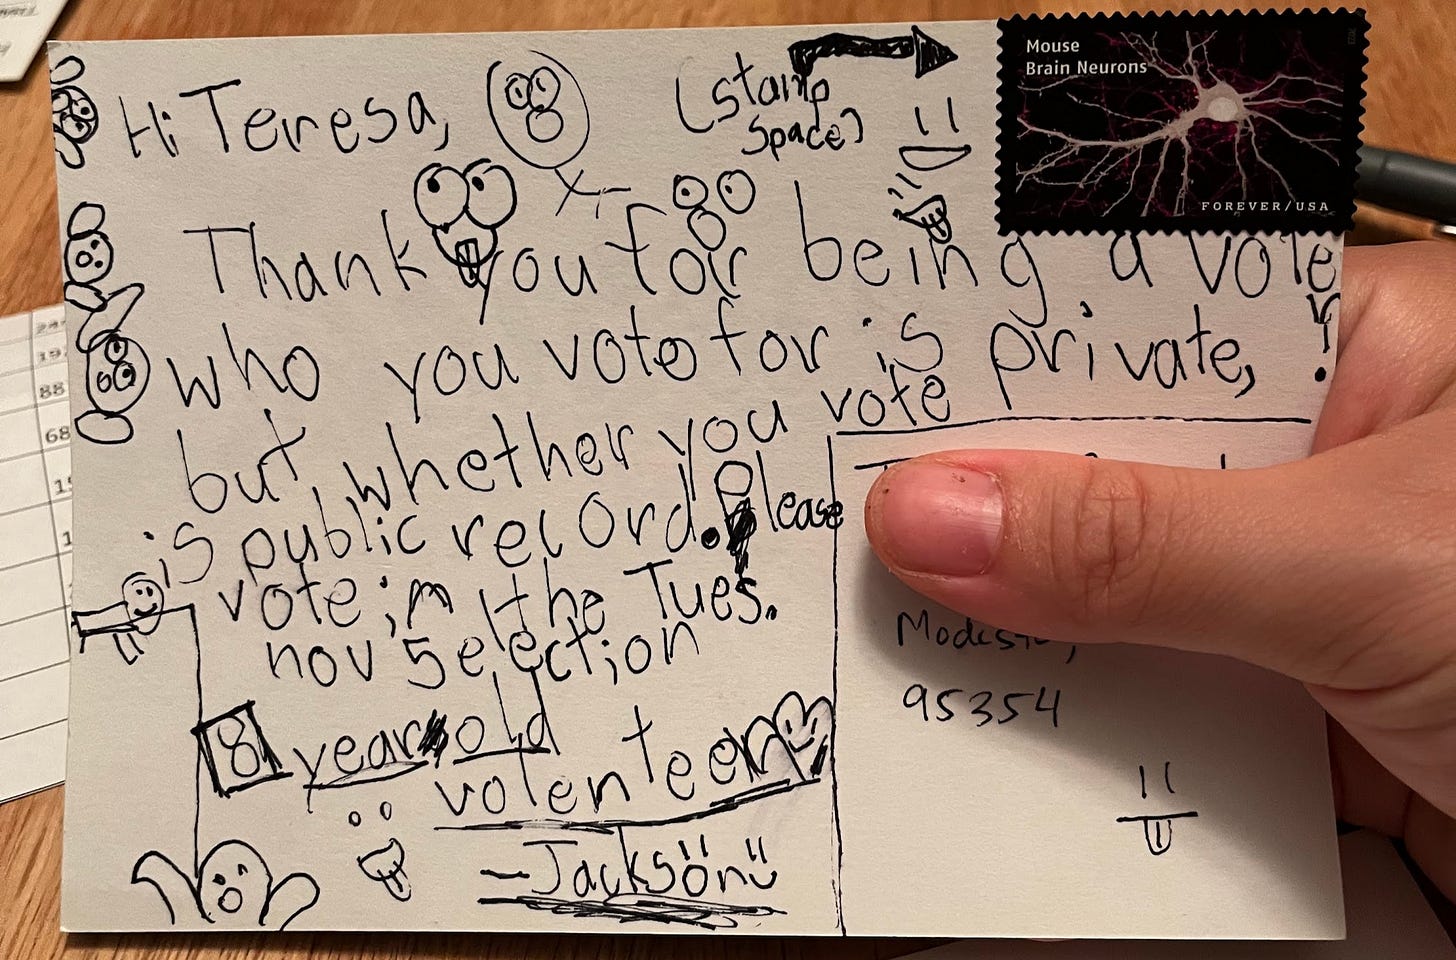 Hi Teresa,
(stamp
space)
Mouse
Brain Neurons
FOREVER/USA
Thank you for being a voter!
who you vote for is private,
but whether you vote
is public record. Please
vote in the Tues.
nov 5 election
8 year old
volenteer
-Jackson
Modesto,
95354